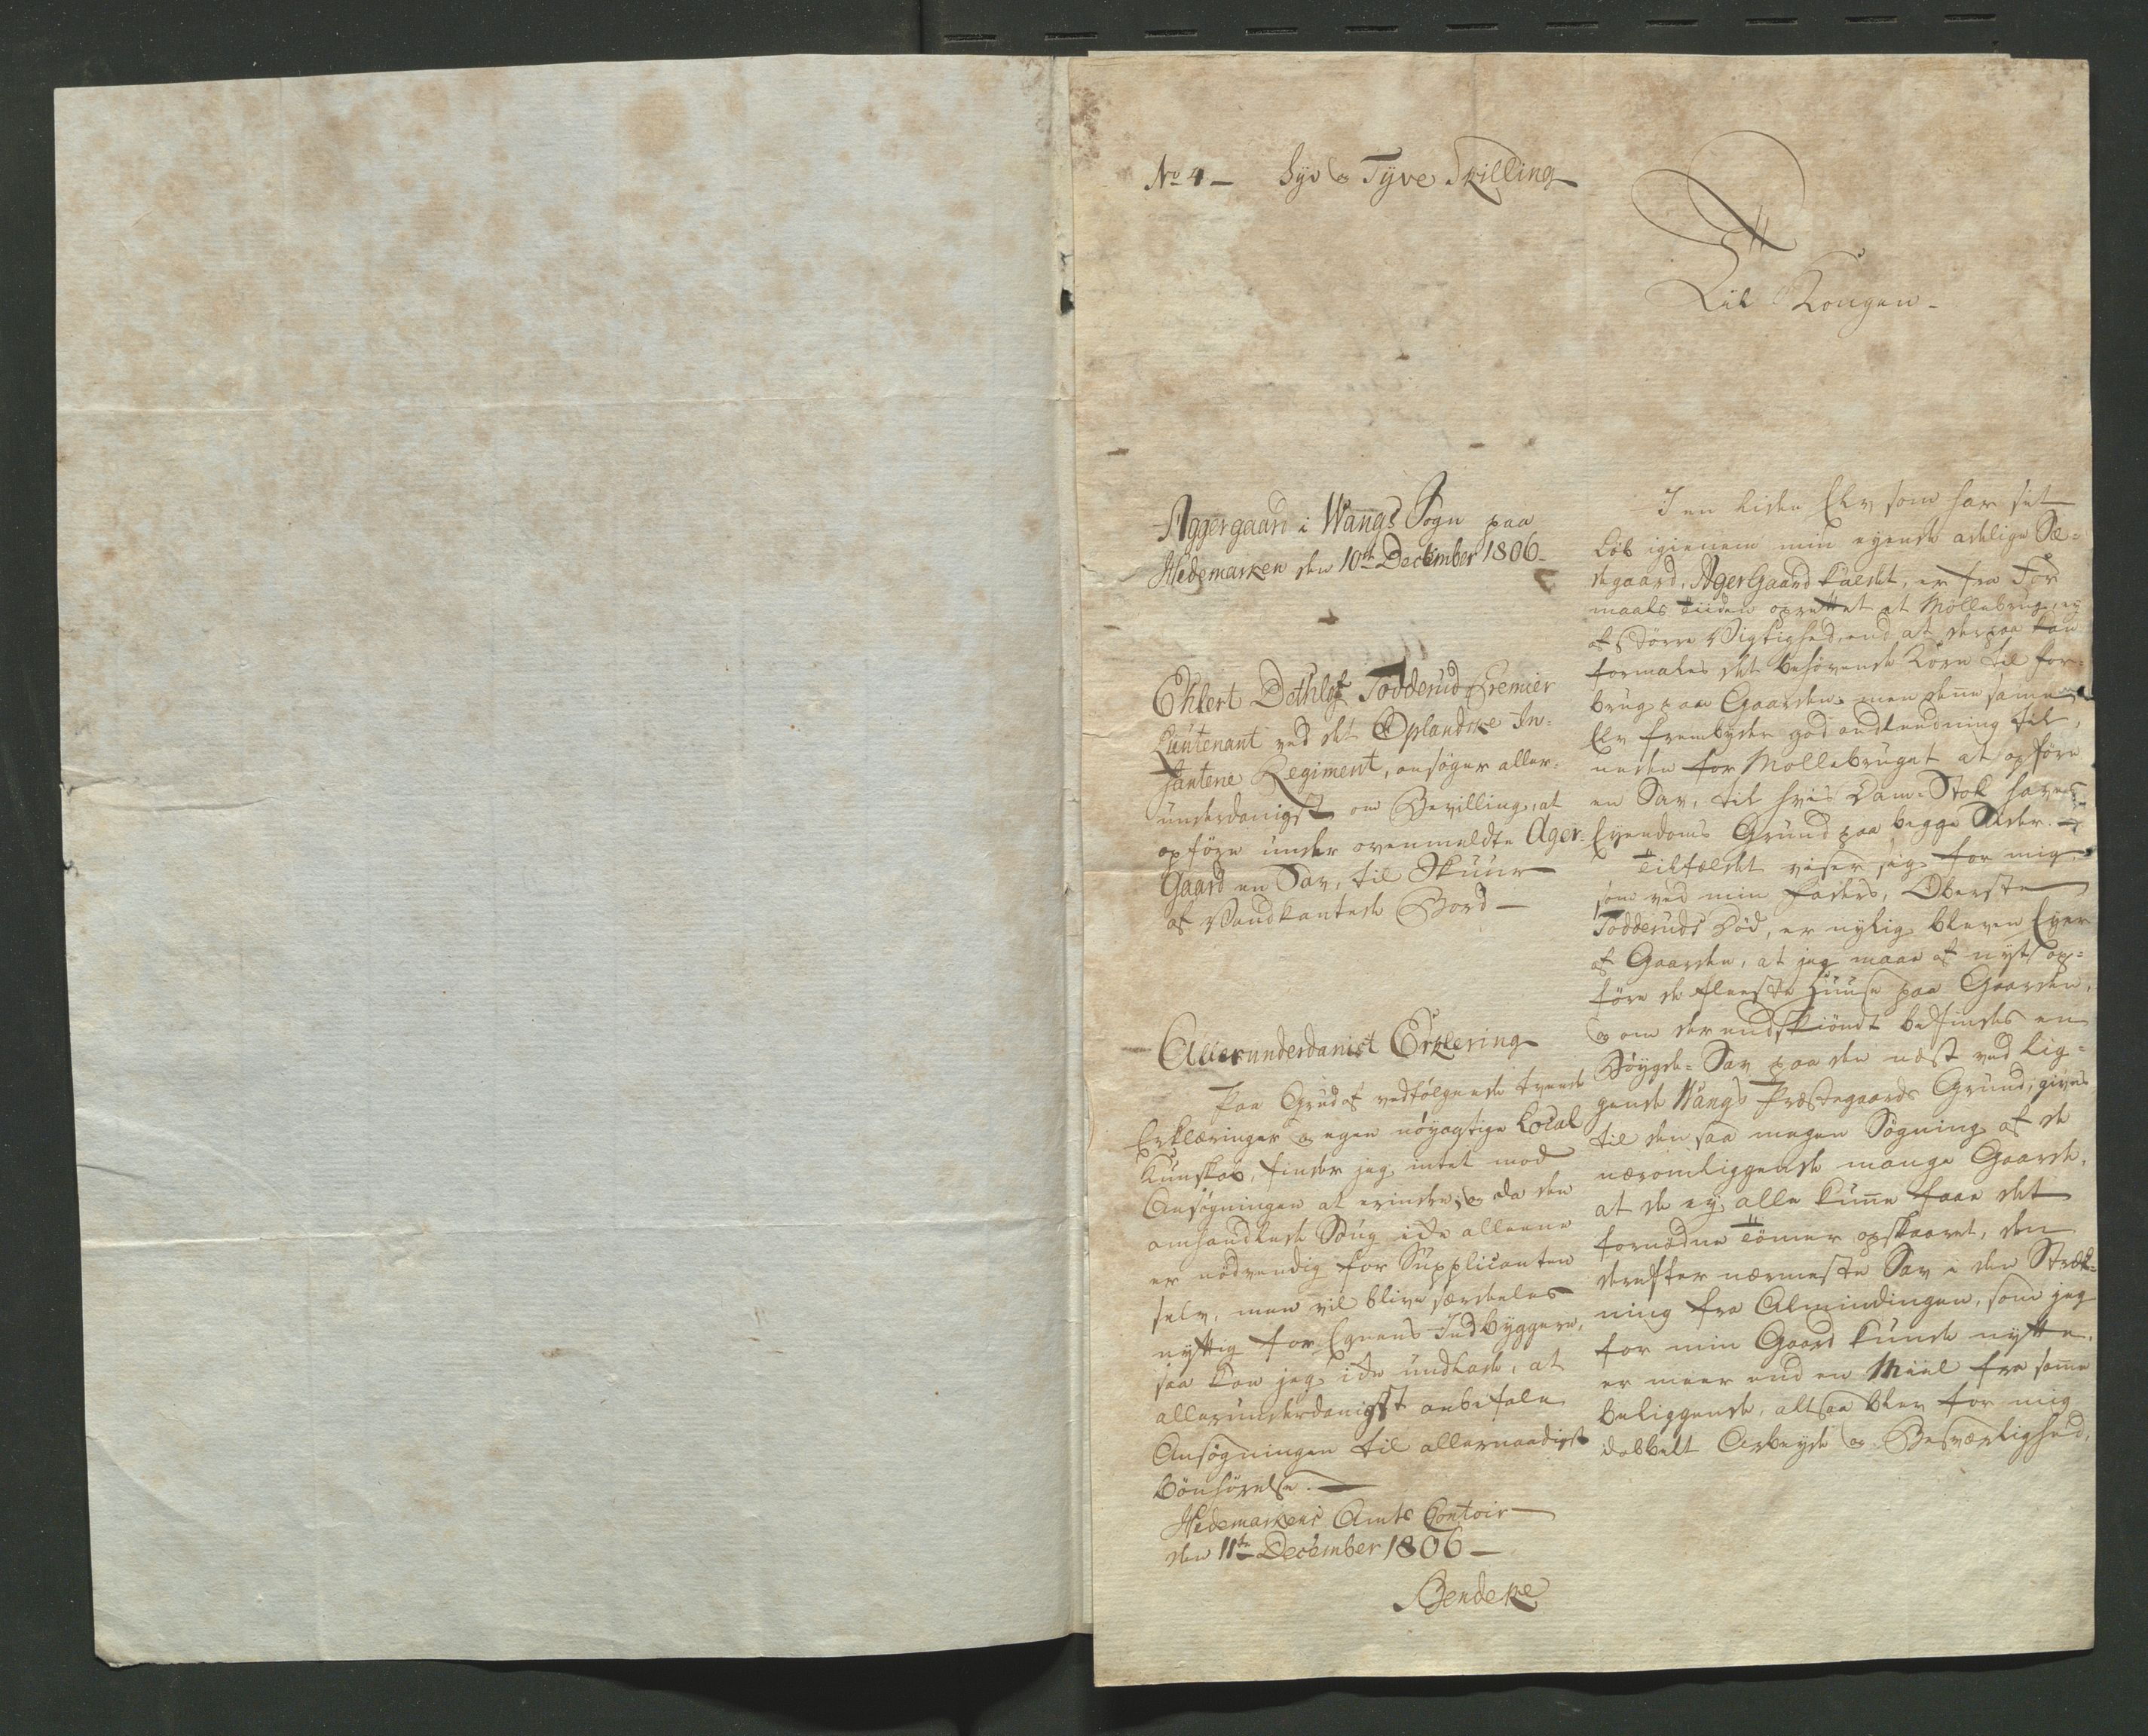 No 4 – Syv og Tyve Skilling
Til Kongen.
Aggergaard i Wangs Sogn paa
Hedemarken den 10de December 1806
Ehlert Dethlef Todderud Premier
Lieutenant ved det Oplandske In-
fanterie Regiment, ansøger aller-
underdanigst om Bevilling, at
opføre under ovenmeldte Ager-
Gaard en Sav, til Skuur
af Vandkantede Bord –
Allerunderdanist Erklering
Paa Grund af vedfølgende tvende
Erklæringer og egen nøyagtige Local
Kundskab, finder jeg intet mod
Ansøgningen at erindre, og da den
omhandlede Saug ikke alleene
er nödvendig for Supplicanten
selv, men vil blive særdeles
nyttig for Egnens Indbyggere,
saa kan jeg ikke undlade, at
allerunderdanigst anbefale
Ansøgningen til allernaadigst
Bönhörelse. –
Hedemarkens Amts Contoir
den 11te December 1806 –
Bendeke
I en liden Elv som har sit
Löb igienem min eyende adelige Sæ-
degaard, AgerGaard kaldet, er fra For
maals Tiiden oprettet et Möllebrug, ey
af större Vigtighed, end at derpaa kan
formales det behövende Korn til for-
brug paa Gaarden. men denne samme
Elv frembyder god andledning til,
neden for Möllebruget at opföre
en Sav, til hvis Dam-Stok haves
Eyendoms Grund paa begge Sider. –
Tilfældet viser sig for mig,
som ved min Faders, Oberste
Todderuds Död, er nylig bleven Eyer
af Gaarden, at jeg maae af nyt op-
före de fleeste Huuse paa Gaarden,
og om der endskiöndt befindes en
Böygde-Sav paa den næst ved lig-
gende Wangs Præstegaards Grund, gives
til den saa megen Sögning af de
næromliggende mange Gaarde,
at de ey alle kunne faae det
fornödne Tömmer opskaaret, den
derefter nærmeste Sav i den Stræk-
ning fra Almindingen, som jeg
for min Gaard kunde nytte,
er meer end en Miil fra samme
beliggende, altsaa blev for mig
dobbelt Arbeyde og Besværlighed,